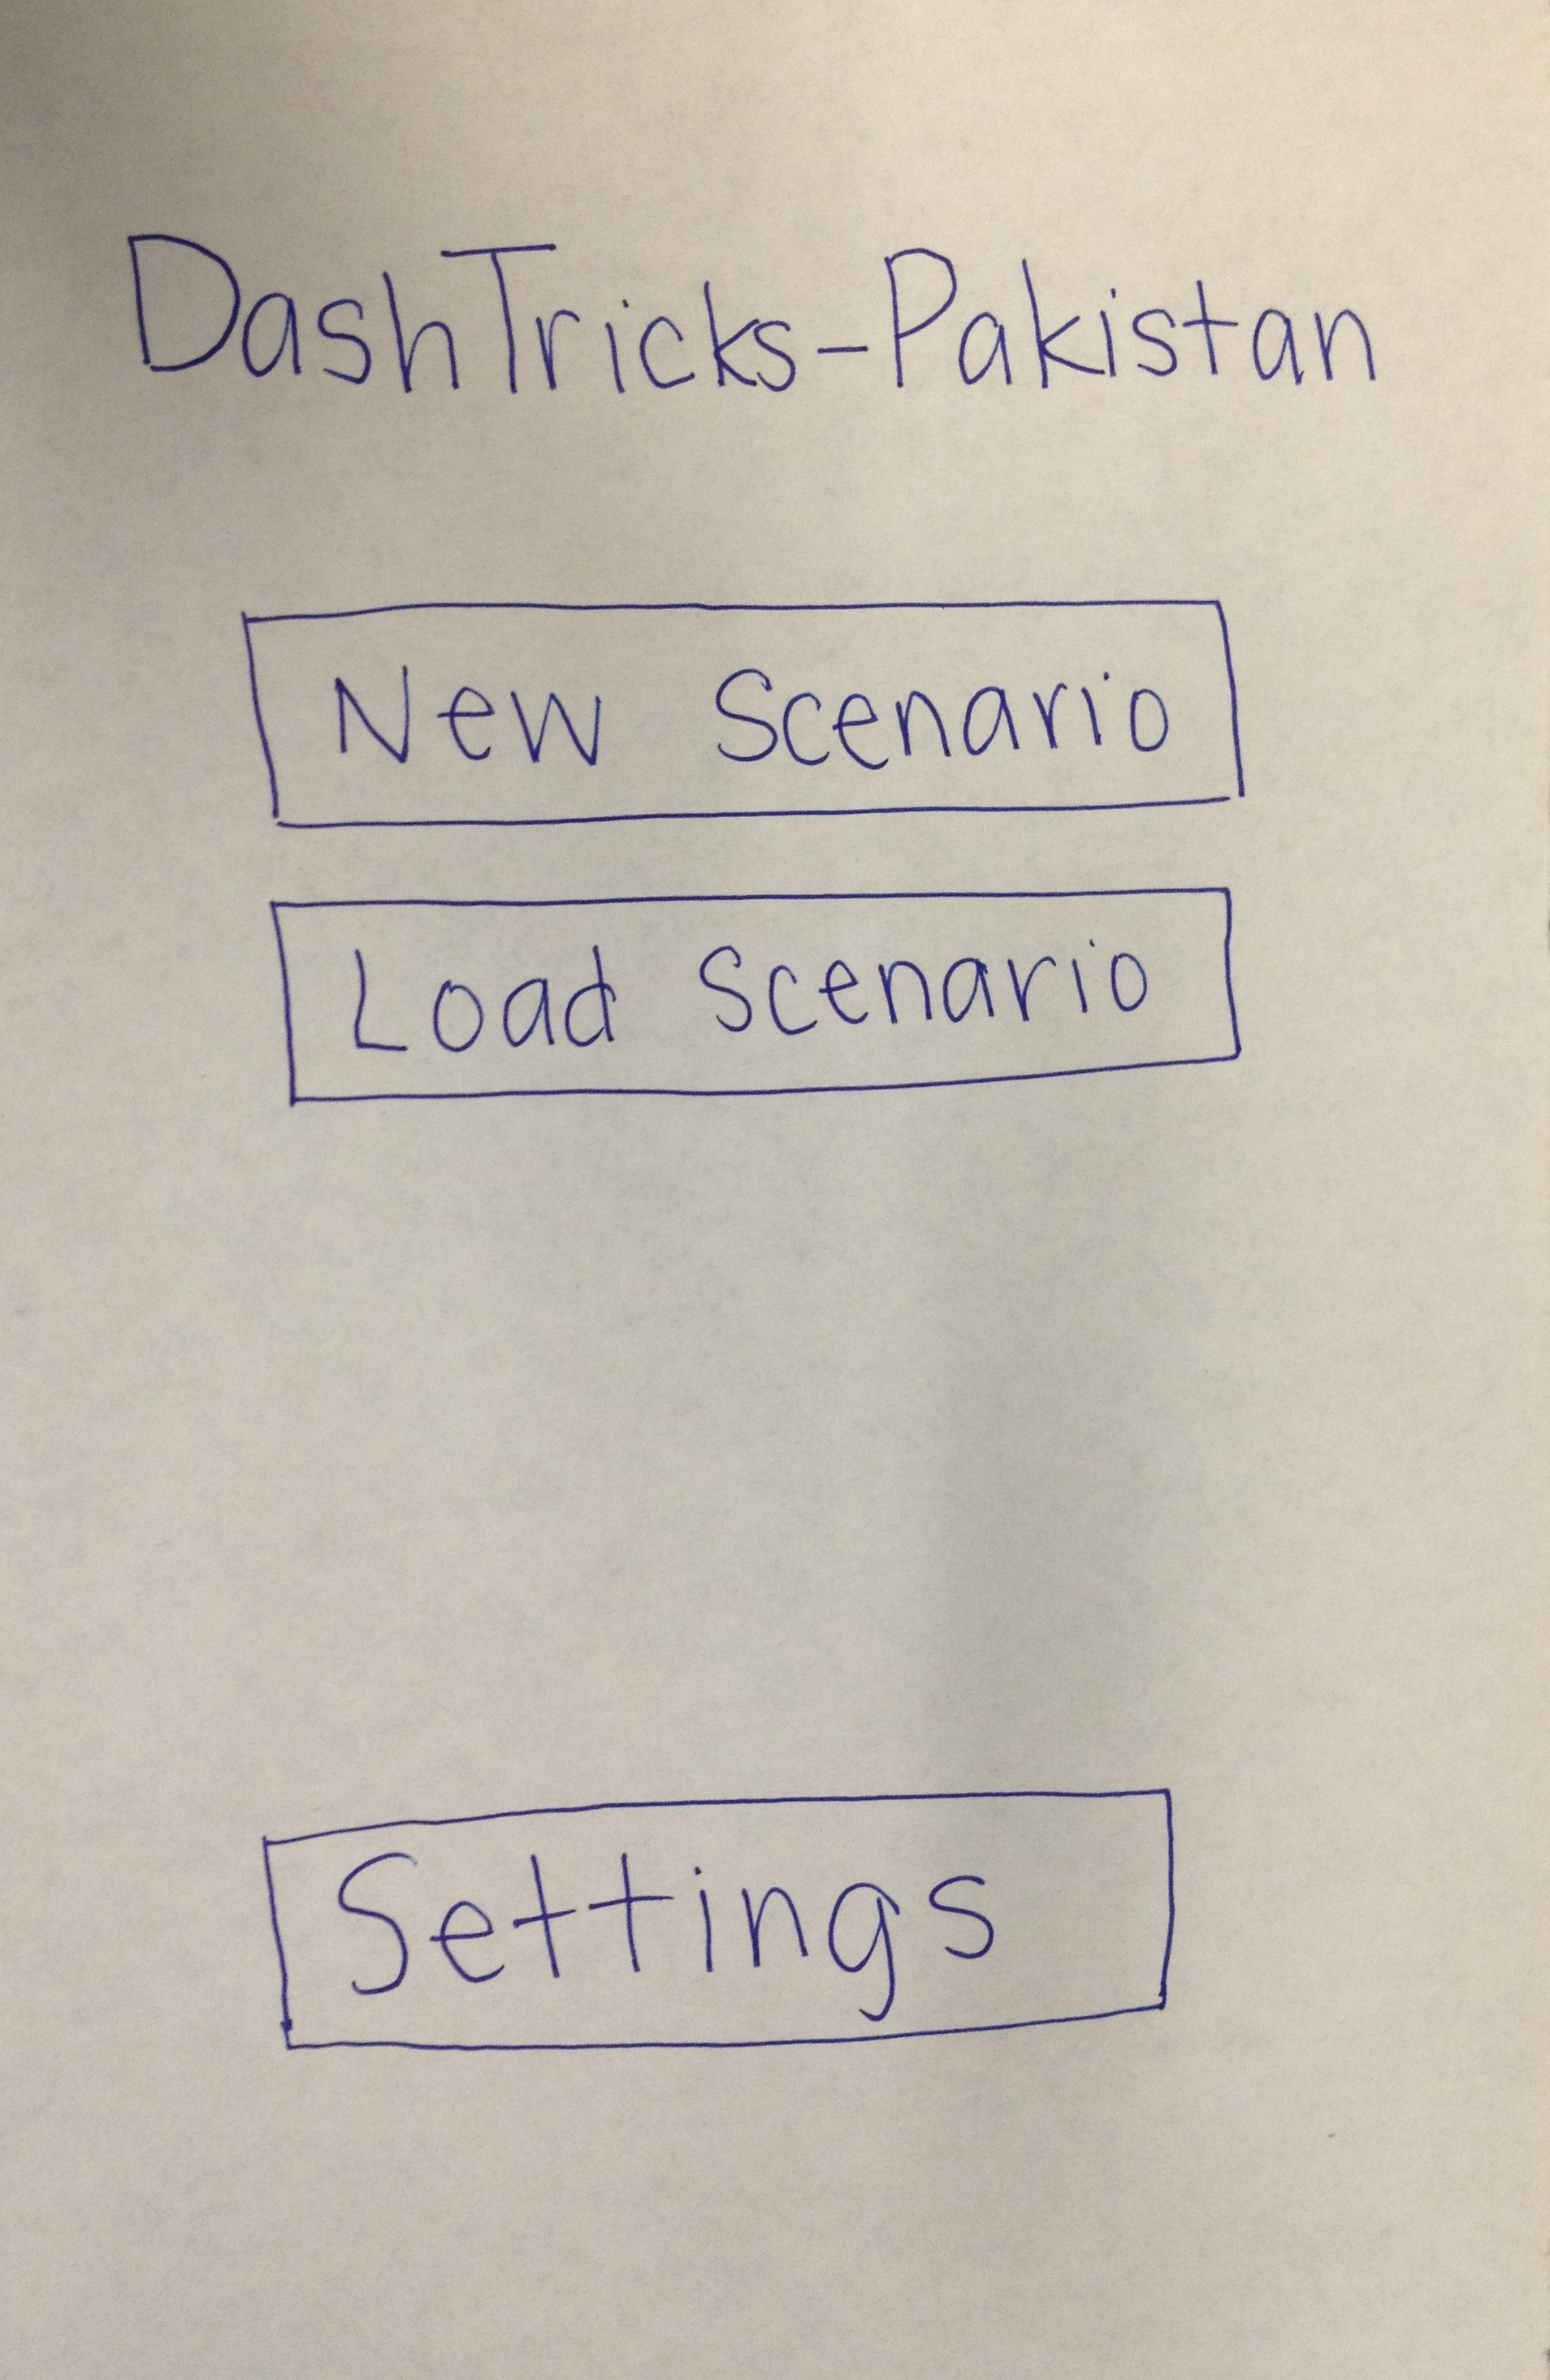 DashTricks-Pakistan
New Scenario
Load Scenario
Settings